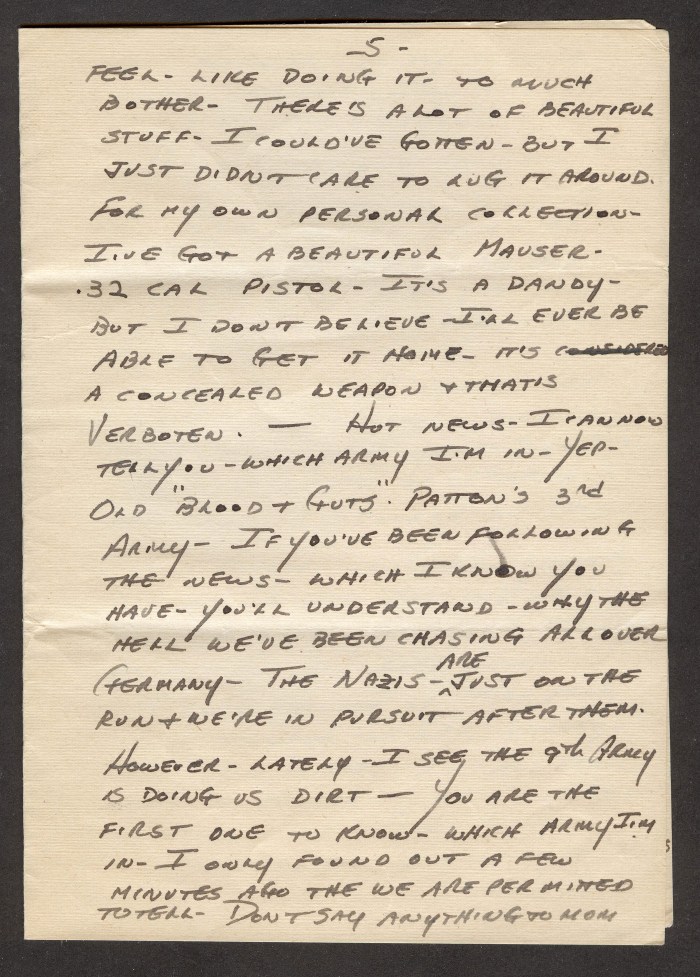 -5-
FEEL- LIKE DOING IT- TO MUCH
BOTHER- THERE'S A LOT OF BEAUTIFUL
STUFF- I COULD'VE GOTTEN- BUT I
JUST DIDN'T CARE TO LUG IT AROUND.
FOR MY OWN PERSONAL COLLECTION-
I'VE GOT A BEAUTIFUL MAUSER-
.32 CAL PISTOL- IT'S A DANDY-
BUT I DON'T BELIEVE -I'LL EVER BE
ABLE TO GET IT HOME- IT'S CONSIDERED
A CONCEALED WEAPON & THAT'S
VERBOTEN. — HOT NEWS- I CAN NOW
TELL YOU -WHICH ARMY I'M IN- YEP-
OLD "BLOOD & GUTS". PATTON'S 3rd
ARMY- IF YOU'VE BEEN FOLLOWING
THE NEWS- WHICH I KNOW YOU
HAVE- YOU'LL UNDERSTAND -WHY THE
HELL WE'VE BEEN CHASING ALL OVER
GERMANY- THE NAZIS- ARE JUST ON THE
RUN & WE'RE IN PURSUIT AFTER THEM.
HOWEVER- LATELY -I SEE THE 9th ARMY
IS DOING US DIRT — YOU ARE THE
FIRST ONE TO KNOW- WHICH ARMY I'M
IN- I ONLY FOUND OUT A FEW
MINUTES AGO THE WE ARE PERMITTED
TO TELL- DON'T SAY ANYTHING TO MOM